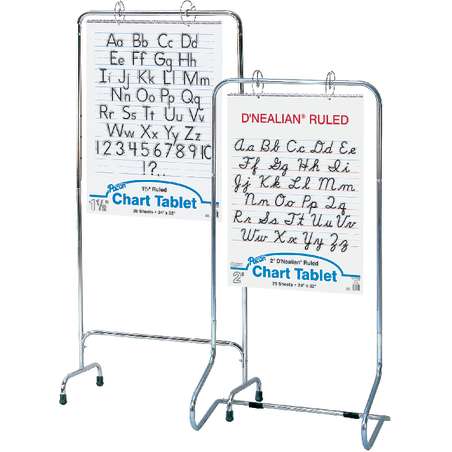 Aa Bb Cc Dd
Ee Ff Gg Hh
Ii Jj Kk Ll Mm
Nn Oo Pp Qq
Rr Ss Tt Uu Vv
Ww Xx Yy Zz
1 2 3 4 5 6 7 8 9 10
!?.,
Pacon
1½" Ruled
1½"
Chart Tablet
25 Sheets • 24" x 32"
D'NEALIAN® RULED
Aa Bb Cc Dd Ee
Ff Gg Hh Ii
Jj Kk Ll Mm
Nn Oo Pp Qq
Rr Ss Tt Uu Vv
Ww Xx Yy Zz
Pacon
2" D'Nealian® Ruled
2"
Chart Tablet
25 Sheets • 24" x 32"